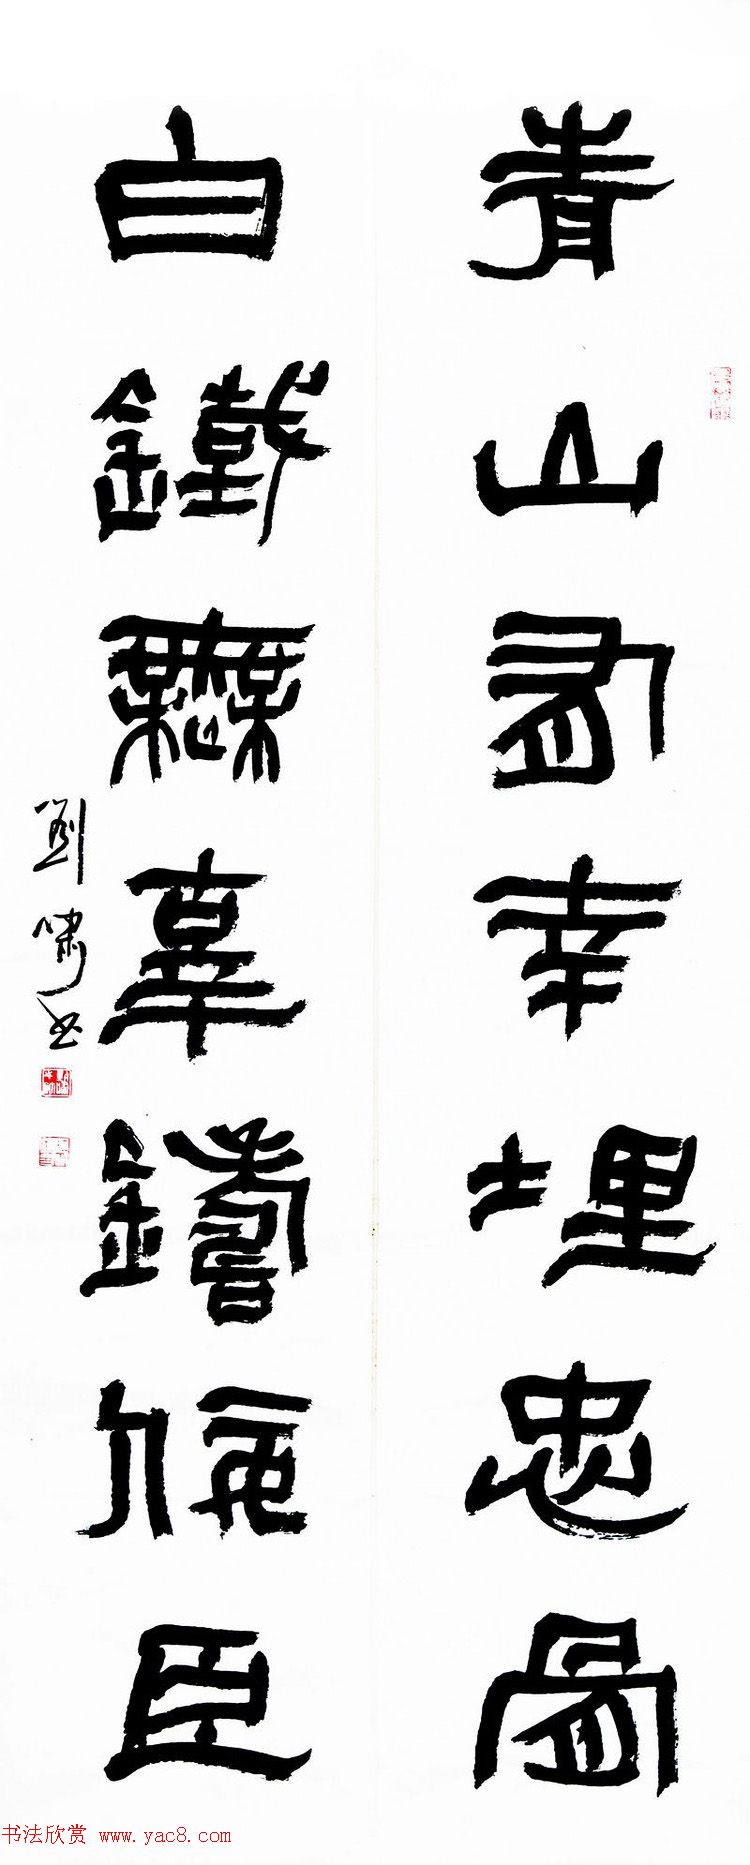 青山有幸埋忠骨
白鐵無辜鑄佞臣
劉嘯书
书法欣赏 www.yac8.com